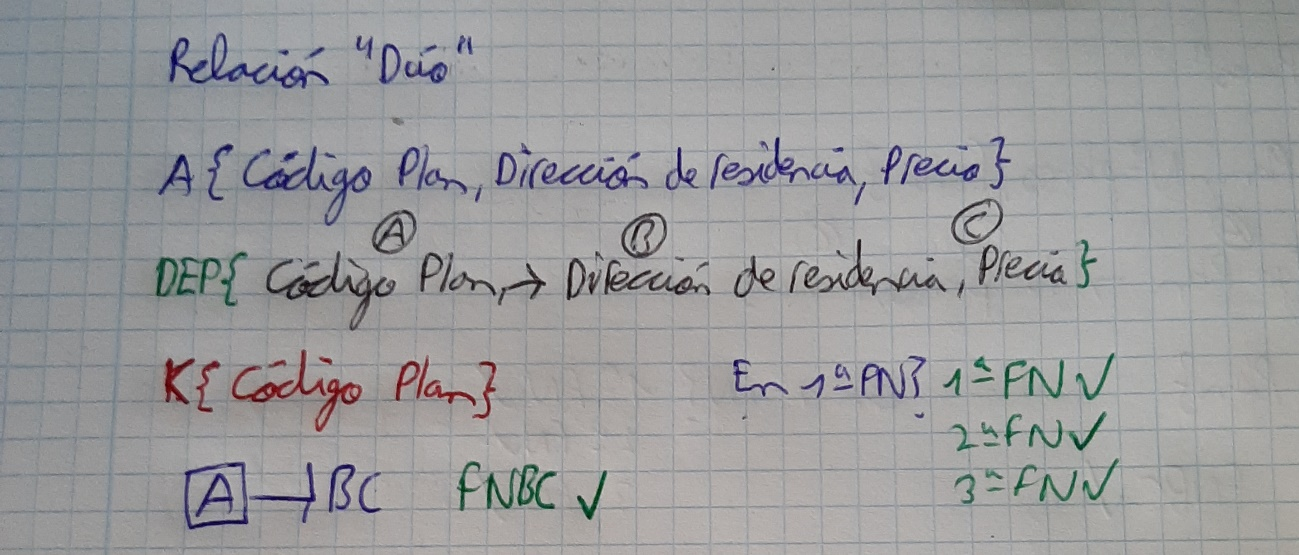 Relación "Dúo"
A{ Código Plan, Dirección de residencia, Precio}
A B C
DEP{ Código Plan, → Dirección de residencia, Precio}
K{ Código Plan} En 1ª FN} 1ª FN ✓
2ª FN ✓
A → BC FNBC ✓ 3ª FN ✓